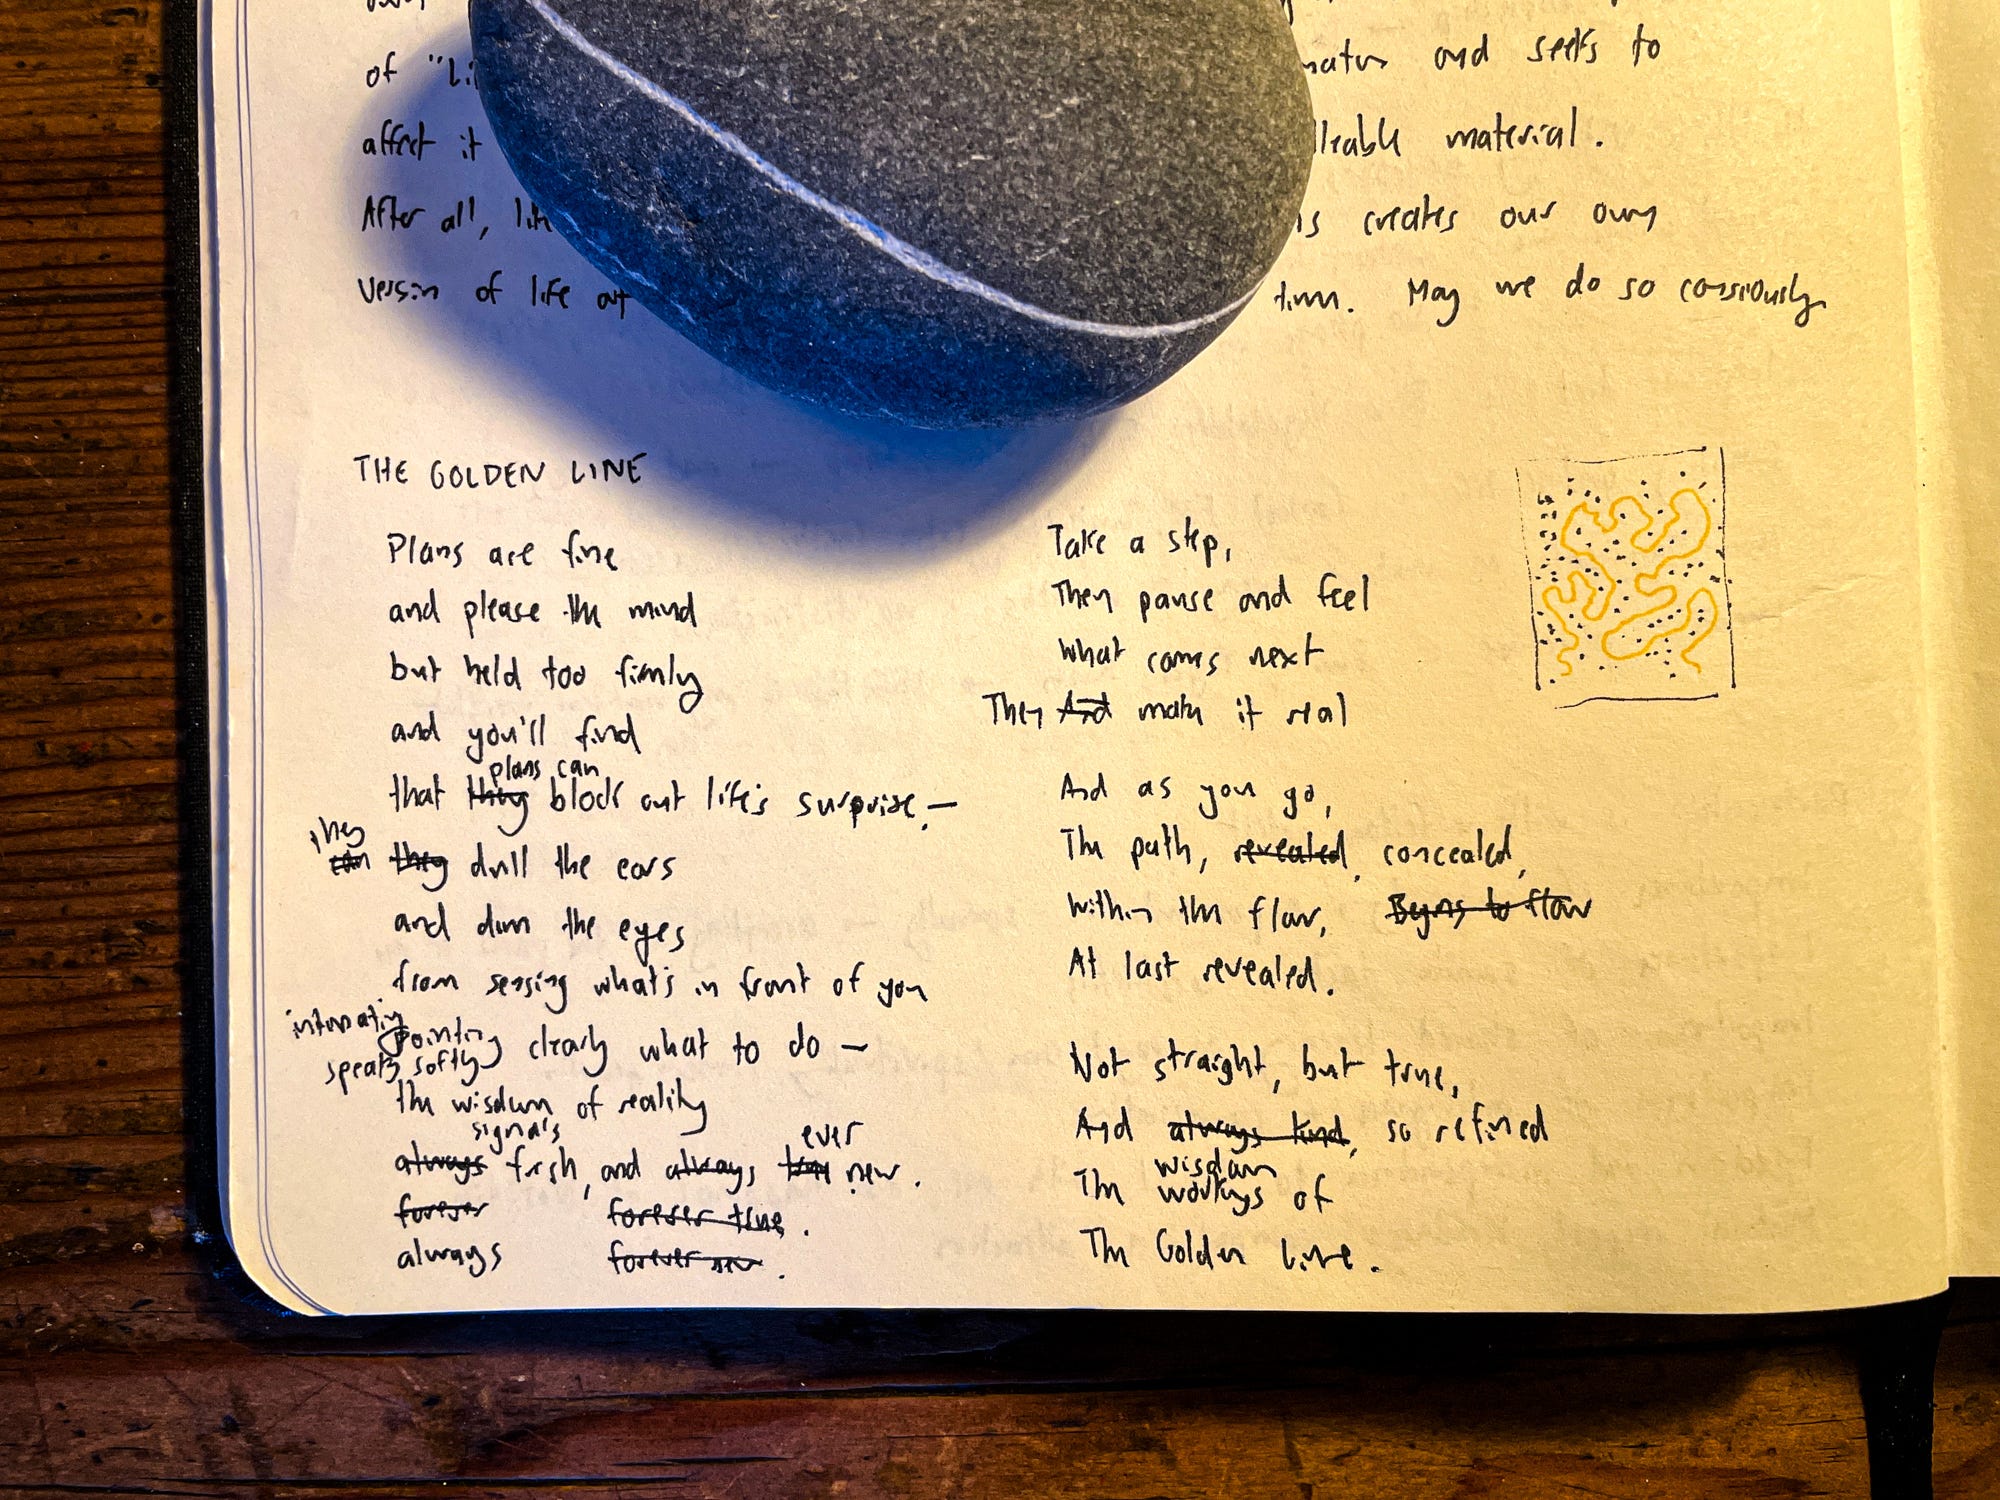 of "Li
and seeks to
affect it
material.
After all, li
creates our own
version of life
time. May we do so consciously
THE GOLDEN LINE
Plans are fine
and please the mind
but held too firmly
and you'll find
plans can
that they block out life's surprise –
they
can they dull the ears
and dim the eyes
from sensing what's in front of you
pointing clearly what to do –
speaks softly
the wisdom of reality
signals
ever
always fresh, and always new.
forever
forever true.
always
forever new.
Take a step,
Then pause and feel
What comes next
Then And make it real
And as you go,
The path, revealed, concealed,
Within the flow, Begins to flow
At last revealed.
Not straight, but true,
And always kind, so refined
wisdom
The workings of
The Golden Line.